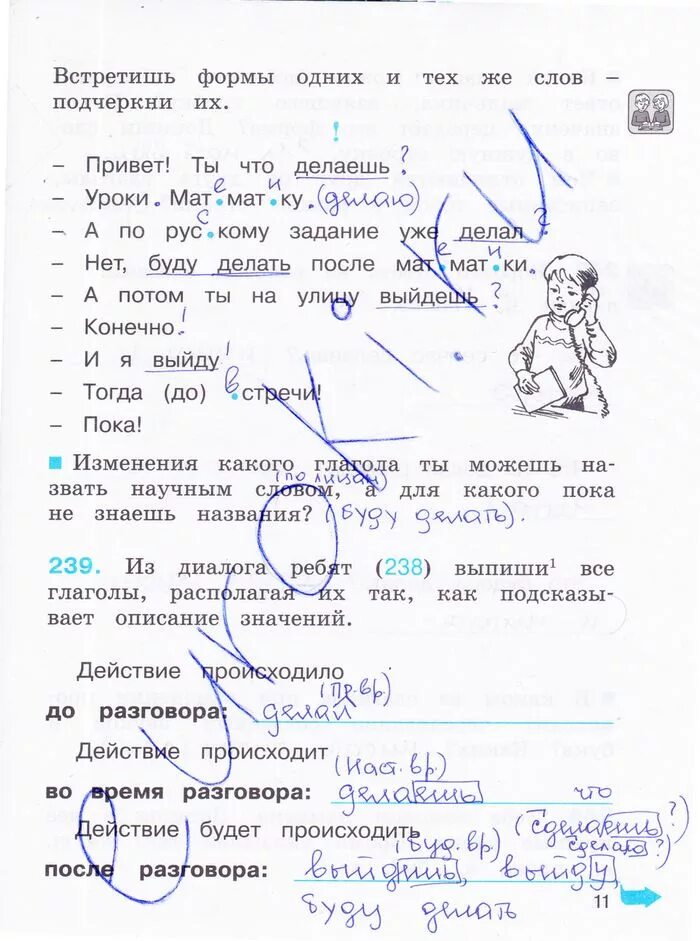 Встретишь формы одних и тех же слов –
подчеркни их.
!
– Привет! Ты что делаешь?
– Уроки. Математику. (делаю)
– А по русскому задание уже делал?
– Нет, буду делать после математики.
– А потом ты на улицу выйдешь?
– Конечно!
– И я выйду!
– Тогда (до) встречи!
– Пока!
Изменения какого глагола ты можешь на-
(по лицам)
звать научным словом, а для какого пока
не знаешь названия? (буду делать).
239. Из диалога ребят (238) выпиши¹ все
глаголы, располагая их так, как подсказы-
вает описание значений.
Действие происходило
(Пр.вр)
до разговора: делал
Действие происходит
(Наст.вр.)
во время разговора: делаешь что
Действие будет происходить (Буд.вр) (сделаешь?)
сделаю?)
после разговора: выйдешь, выйду,
буду делать
11